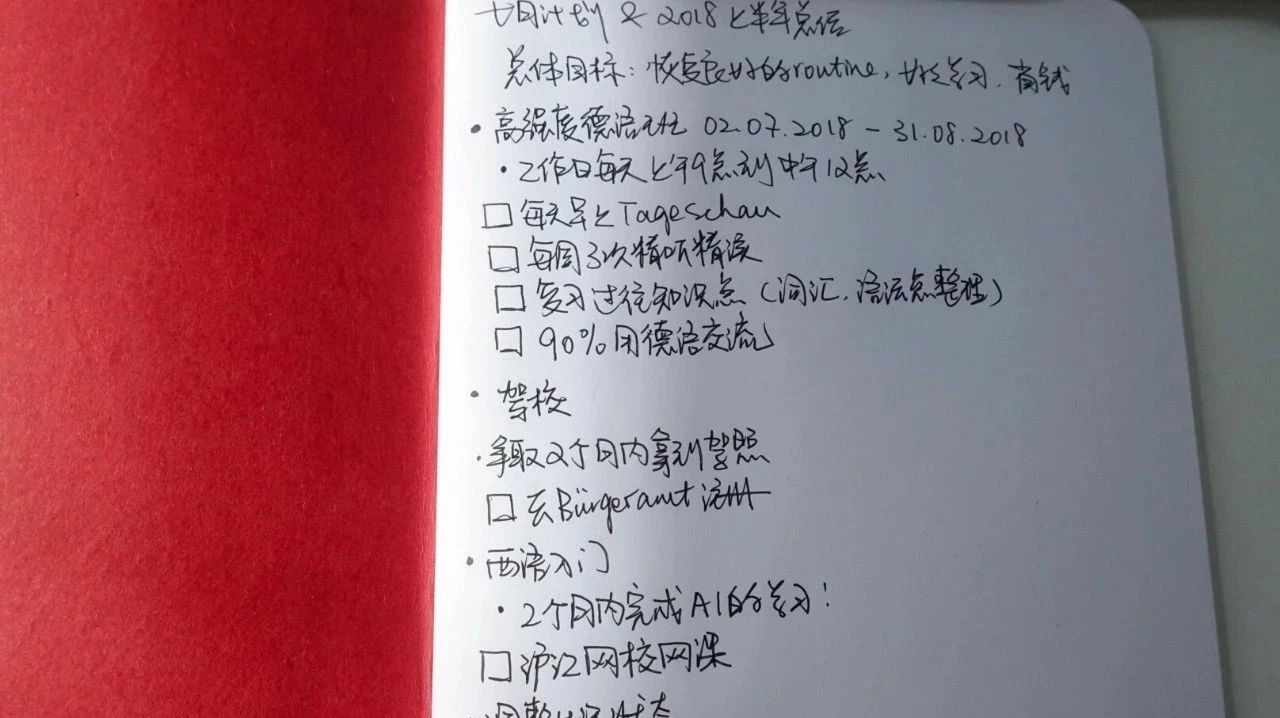 七月计划 & 2018上半年总结
总体目标：恢复良好的routine，好好学习，省钱
• 高强度德语班 02.07.2018 - 31.08.2018
• 工作日每天上午9点到中午12点
□ 每天早上Tageschau
□ 每周3次精听精读
□ 复习过往知识点（词汇，语法点整理）
□ 90%用德语交流
• 驾校
• 争取2个月内拿到驾照
□ 去Bürgeramt注册
• 西语入门
• 2个月内完成A1的学习！
□ 沪江网校网课
调整状态